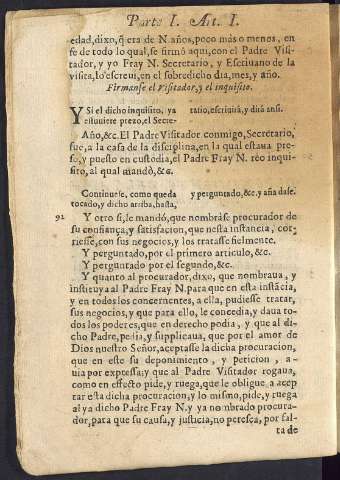 Parte I. Art. I.
edad, dixo, q̃ era de N. años, poco más o menos, en
fe de todo lo qual, se firmò aqui, con el Padre Visi-
tador, y yo Fray N. Secretario, y Escriuano de la
visita, lo escreui, en el sobredicho dia, mes, y año.
Firmanse el Visitador, y el inquisito.
Y Si el dicho inquisito, ya estuuiere prezo, el Secre- tario, escriuirà, y dirà ansi.
Año, &c. El Padre Visitador conmigo, Secretario,
fue, a la casa de la disciplina, en la qual estaua pre-
so, y puesto en custodia, el Padre Fray N. reo inqui-
sito, al qual mandò, &c.
Continuese, como queda tocado, y dicho arriba, hasta, y perguntado, &c. y aña dase.
92 Y otro si, le mandó, que nombràse procurador de
su confiança, y satisfacion, que nesta instancia, cor-
riesse, con sus negocios, y los tratasse fielmente.
Y perguntado, por el primero articulo, &c.
Y perguntado por el segundo, &c.
Y quanto al procurador, dixo, que nombraua, y
instituya al Padre Fray N. para que en esta instãcia,
y en todos los concernentes, a ella, pudiesse tratar,
sus negocios, y que para ello, le concedia, y daua to-
dos los poderes, que en derecho podia, y que al di-
cho Padre, pedia, y supplicaua, que por el amor de
Dios nuestro Señor, aceptasse la dicha procuracion,
que en este su deponimiento, y peticion, a-
uia por expressa: y que al Padre Visitador rogaua,
como en effecto pide, y ruega, que le obligue a acep
tar esta dicha procuracion, y lo mismo, pide, y ruega
al ya dicho Padre Fray N. y ya nombrado procura-
dor, para que su causa, y justicia, no peresça, por fal-
ta de